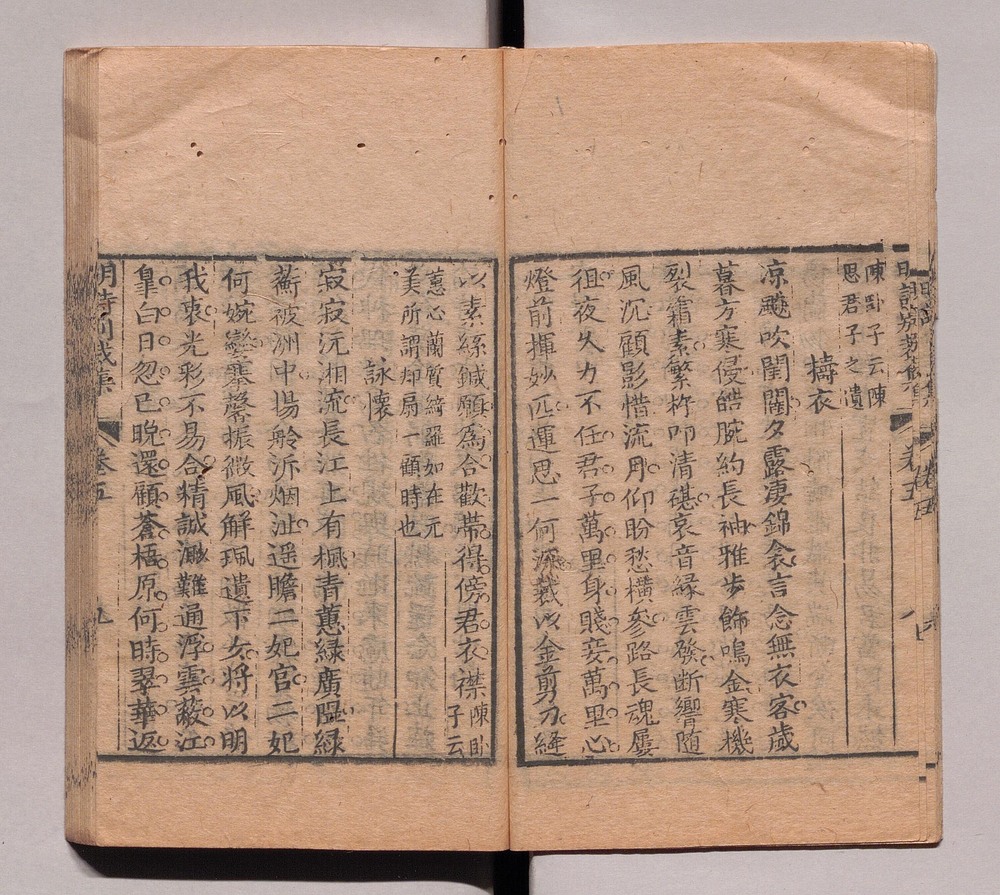 陳卧子云陳
思君子之遺
擣衣
涼飈吹閨闥夕露淒錦衾言念無衣客歲
暮方寒侵皓腕約長袖雅步飾鳴金寒機
裂霜素繁杵叩清碪哀音緣雲發断響随
風沉顧影惜流月仰盼愁横參路長魂屢
徂夜久力不任君子萬里身賤妾萬里心
燈前揮妙匹運思一何深裁以金剪刀縫
以素絲鍼願為合歡帶得傍君衣襟
陳卧
子云
蕙心蘭質綺羅如在元
美所謂却扇一顧時也
詠懷
寂寂沅湘流長江上有楓青蕙緑廣隰緑
蘅被洲中揚舲泝烟沚遥瞻二妃宫二妃
何婉孌搴馨振微風解珮遺下女將以明
我衷光彩不易合精誠邈難通浮雲蔽江
皐白日忽已晩還顧蒼梧原何時翠華返
卷五
九